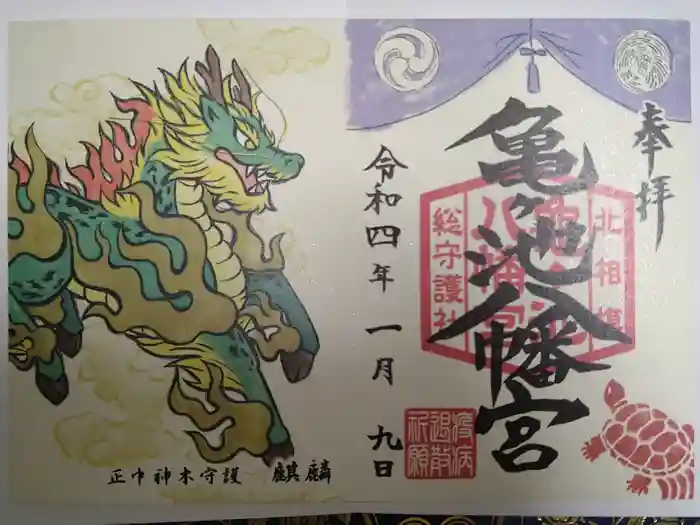 奉拝
亀ヶ池八幡宮
北相模
亀ヶ池
八幡宮
総守護社
疫病
退散
祈願
令和四年 一月 九日
正中神木守護 麒麟